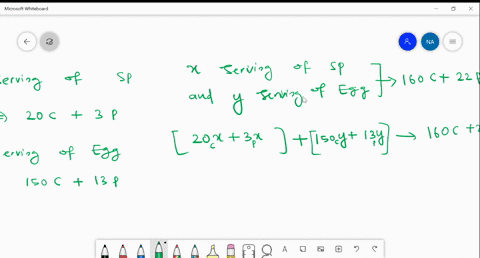 Microsoft Whiteboard
NA
serving of SP
20 C + 3 P
serving of Egg
150 C + 13 P
x serving of SP
and y serving of Egg
→ 160 C + 22 P
[20cx + 3px] + [150cy + 13py] → 160 C +
A